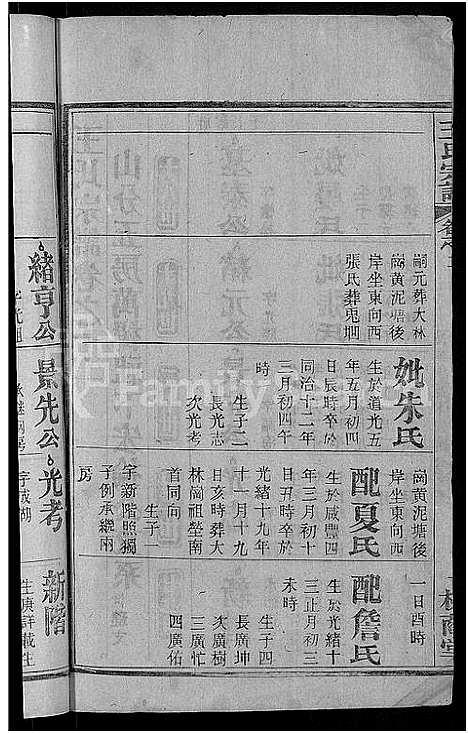 王氏宗譜
嗣元葬大林
崗黃泥塘後
岸坐東向西
張氏葬兎朏
妣朱氏
生於道光五
年五月初四
日辰時卒於
同治十二年
三月初四午
時
生子二
長光志
次光考
崗黃泥塘後
岸坐東向西
配夏氏
生於咸豐四
年三月初十
日丑時卒於
光緒十九年
十一月十九
日亥時葬大
林崗祖塋南
首同向
生子一
字新階照獨
子例承繼兩
房
一日酉時
配詹氏
生於光緒十
三正月初三
未時
生子四
長廣坤
次廣樹
三廣忙
四廣佑
緒亨公
景先公
光考
新階
生庚詳載生
FamilySearch